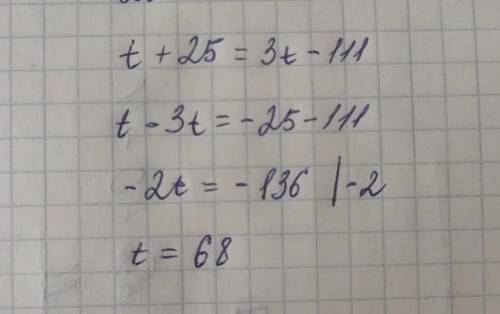 t + 25 = 3t - 111
t - 3t = -25 - 111
-2t = -136 |-2
t = 68